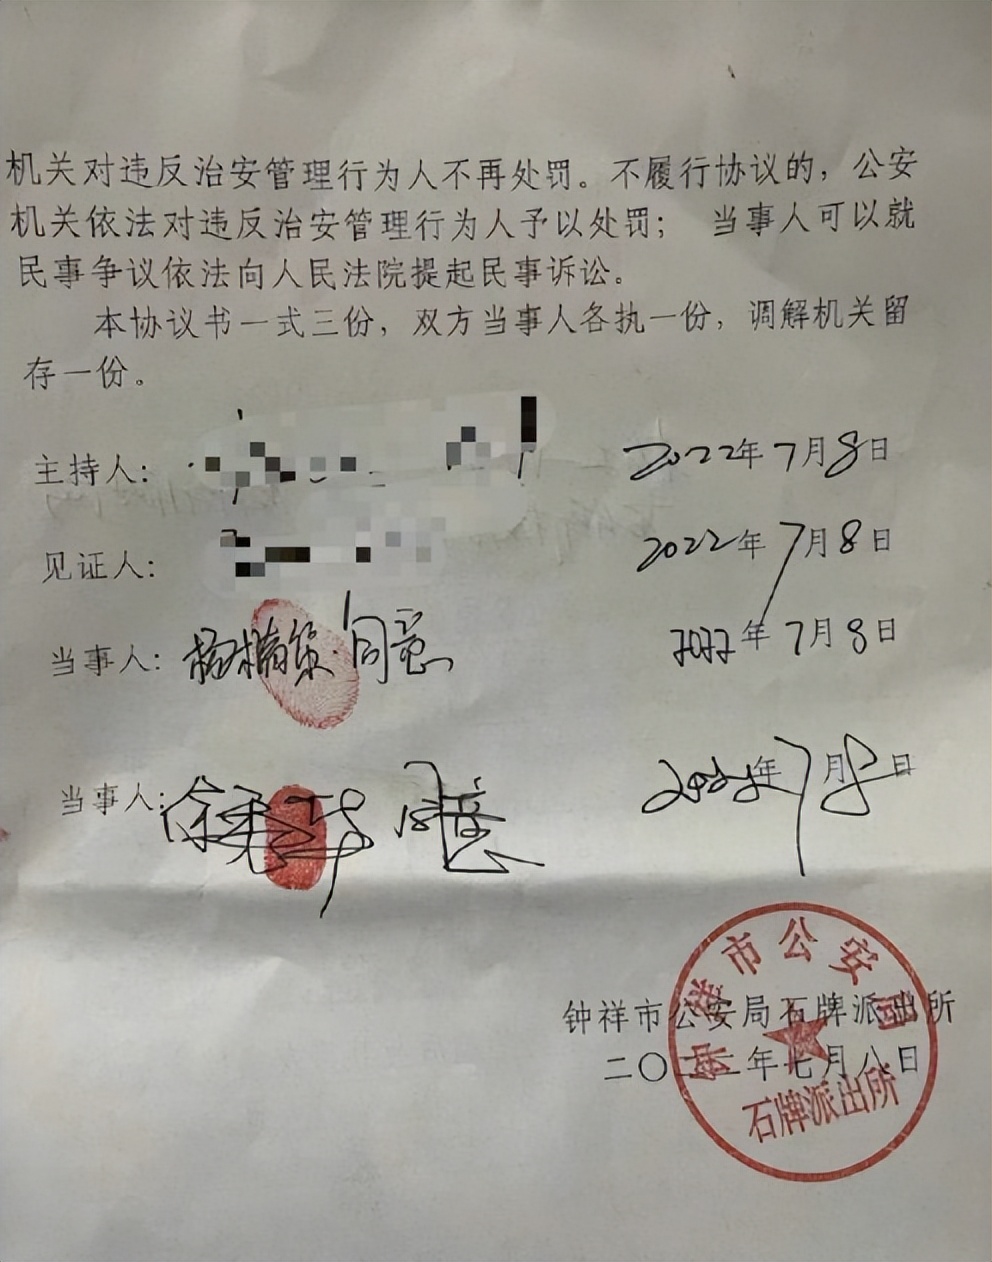 机关对违反治安管理行为人不再处罚。不履行协议的，公安
机关依法对违反治安管理行为人予以处罚；  当事人可以就
民事争议依法向人民法院提起民事诉讼。
本协议书一式三份，双方当事人各执一份，调解机关留
存一份。
主持人： 2022年7月8日
见证人： 2022年7月8日
当事人：杨楠 同意 2022年7月8日
当事人：徐 华 同意 2022年7月8日
钟祥市公安局石牌派出所
二〇二二年七月八日
钟祥市公安局
石牌派出所